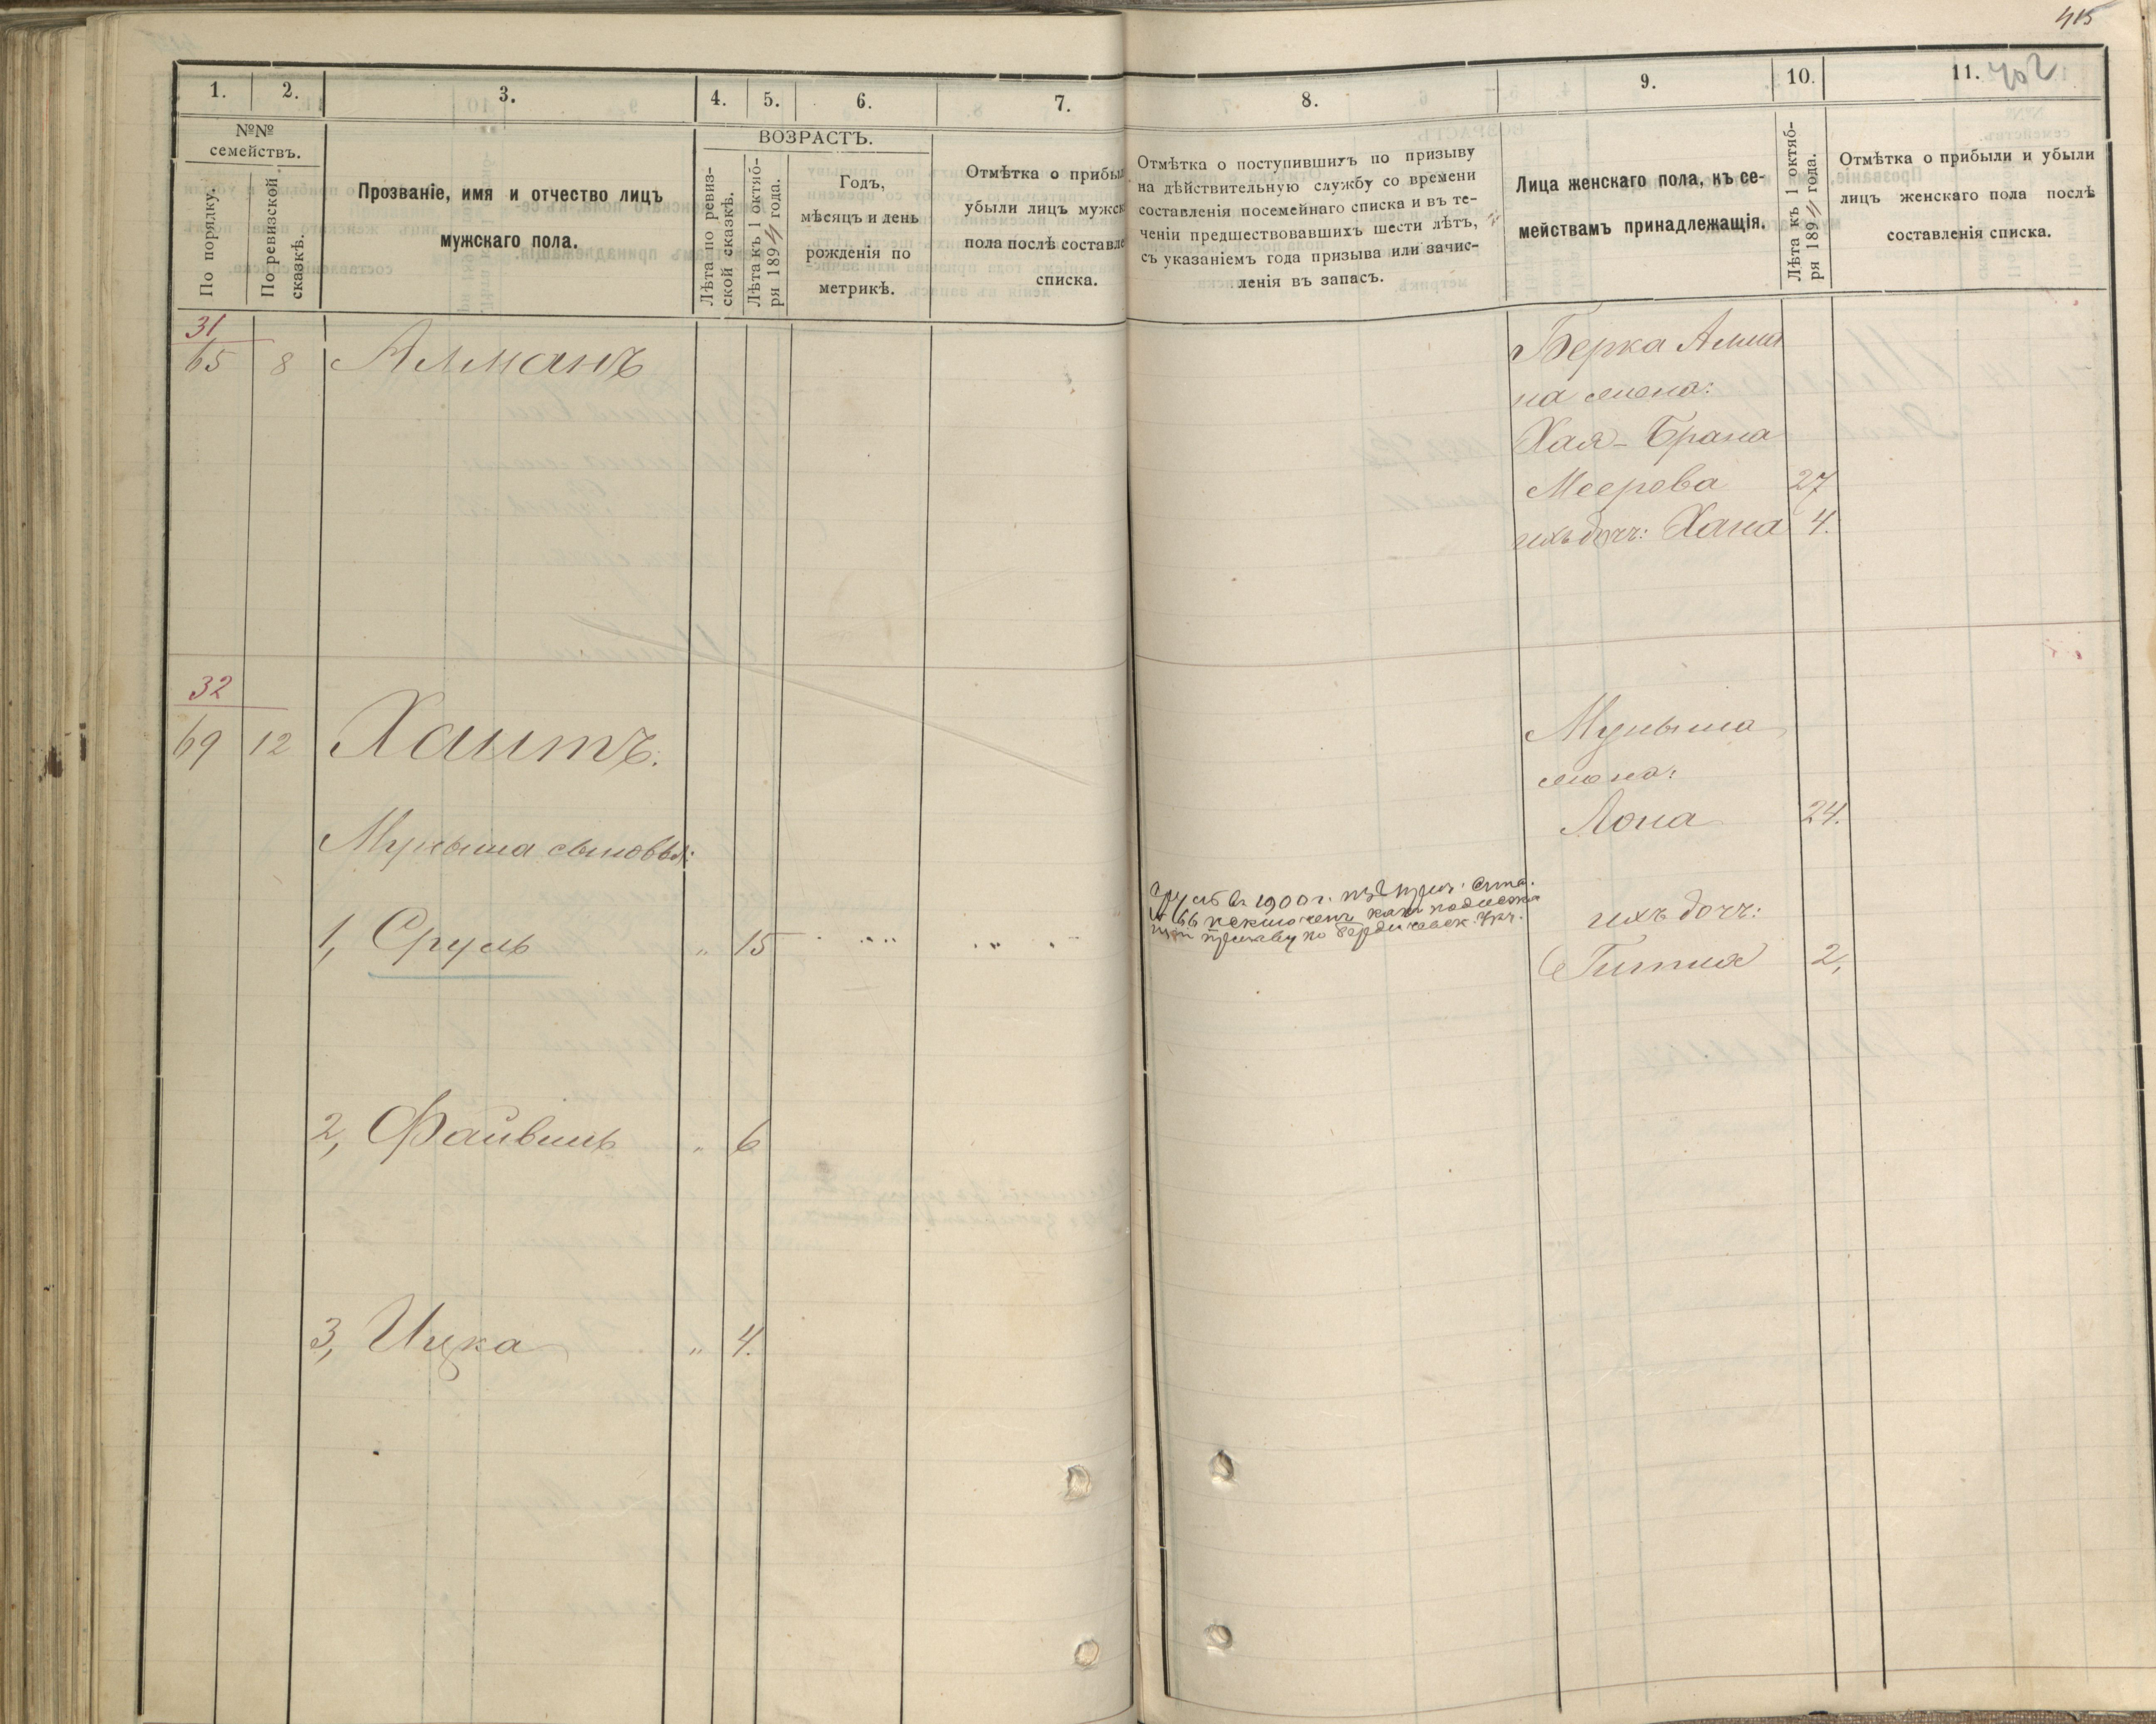 415
1.
2.
3.
4.
5.
6.
7.
8.
9.
10.
11.
702
№№
семействъ.
По порядку.
По ревизской
сказкѣ.
Прозваніе, имя и отчество лицъ
мужскаго пола.
ВОЗРАСТЪ.
Лѣта по ревиз-
ской сказкѣ.
Лѣта къ 1 октяб-
ря 1894 года.
Годъ,
мѣсяцъ и день
рожденія по
метрикѣ.
Отмѣтка о прибы
убыли лицъ мужск
пола послѣ составле
списка.
Отмѣтка о поступившихъ по призыву
на дѣйствительную службу со времени
составленія посемейнаго списка и въ те-
ченіи предшествовавшихъ шести лѣтъ,
съ указаніемъ года призыва или зачис-
ленія въ запасъ.
Лица женскаго пола, къ се-
мействамъ принадлежащія.
Лѣта къ 1 октяб-
ря 1894 года.
Отмѣтка о прибыли и убыли
лицъ женскаго пола послѣ
составленія списка.
31
65 8 Алманъ
Берка Алма
на жена:
Хая-Брана
Меерова 27
ихъ доч: Хана 4.
32
69 12 Хаитъ.
жена:
24.
сыновья:
1, Сруль " 15
Сруль въ 1900 г. изъ приз.
исключенъ какъ подлежа
щій призыву по Бердичевск.
ихъ доч:
Гитля 2,
2, Файвишъ " 6
3, Ицка " 4.